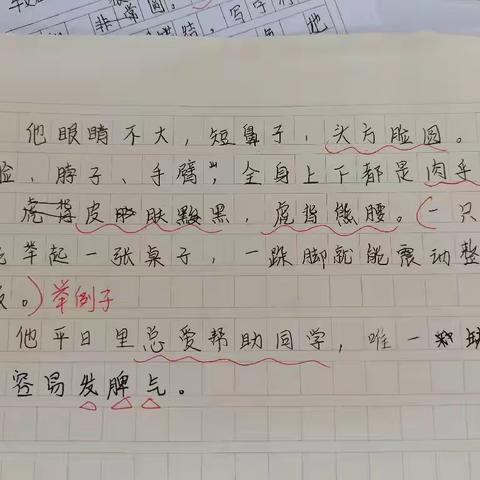 非常圆。
结，写字
地
他眼睛不大，短鼻子，头方脸圆。
脸、脖子、手臂"，全身上下都是肉乎
虎背皮肤黑黑，虎背熊腰。（一只
举起一张桌子，一跺脚就能震动整
。）举例子
他平日里总爱帮助同学，唯一
容易发脾气。